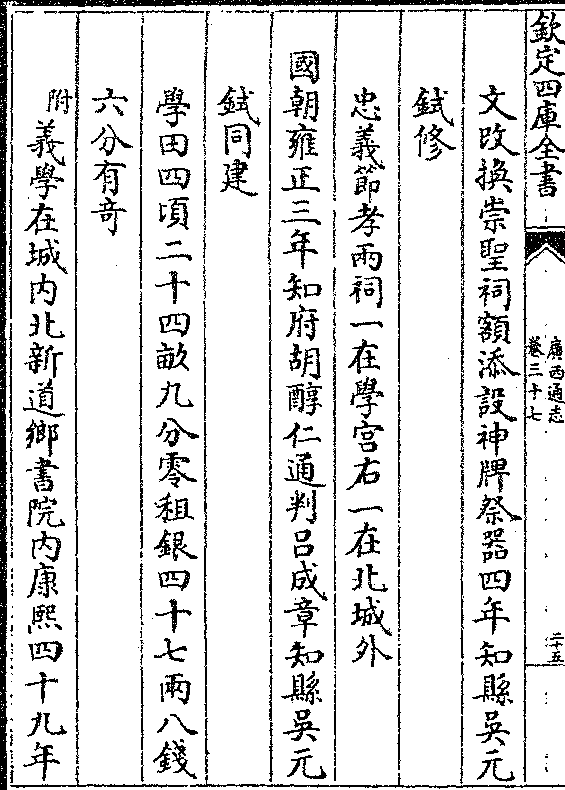 欽定四庫全書
廣西通志
卷三十七
二十五
文改換崇聖祠額添設神牌祭器四年知縣吳元
鋱修
忠義節孝兩祠一在學宫右一在北城外
國朝雍正三年知府胡醇仁通判吕成章知縣吳元
鋱同建
學田四頃二十四畝九分零租銀四十七兩八錢
六分有竒
附義學在城内北新道鄉書院内康熙四十九年